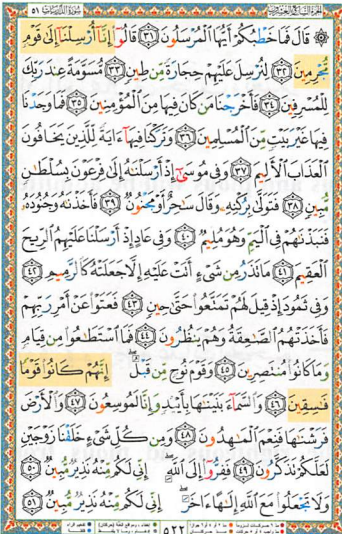 سورة الذاريات ٥١
۞ قَالَ فَمَا خَطْبُكُمْ أَيُّهَا ٱلْمُرْسَلُونَ ٣١ قَالُوٓا۟ إِنَّآ أُرْسِلْنَآ إِلَىٰ قَوْمٍ
مُّجْرِمِينَ ٣٢ لِنُرْسِلَ عَلَيْهِمْ حِجَارَةً مِّن طِينٍ ٣٣ مُّسَوَّمَةً عِندَ رَبِّكَ
لِلْمُسْرِفِينَ ٣٤ فَأَخْرَجْنَا مَن كَانَ فِيهَا مِنَ ٱلْمُؤْمِنِينَ ٣٥ فَمَا وَجَدْنَا
فِيهَا غَيْرَ بَيْتٍ مِّنَ ٱلْمُسْلِمِينَ ٣٦ وَتَرَكْنَا فِيهَآ ءَايَةً لِّلَّذِينَ يَخَافُونَ
ٱلْعَذَابَ ٱلْأَلِيمَ ٣٧ وَفِى مُوسَىٰٓ إِذْ أَرْسَلْنَٰهُ إِلَىٰ فِرْعَوْنَ بِسُلْطَٰنٍ
مُّبِينٍ ٣٨ فَتَوَلَّىٰ بِرُكْنِهِۦ وَقَالَ سَٰحِرٌ أَوْ مَجْنُونٌ ٣٩ فَأَخَذْنَٰهُ وَجُنُودَهُۥ
فَنَبَذْنَٰهُمْ فِى ٱلْيَمِّ وَهُوَ مُلِيمٌ ٤٠ وَفِى عَادٍ إِذْ أَرْسَلْنَا عَلَيْهِمُ ٱلرِّيحَ
ٱلْعَقِيمَ ٤١ مَا تَذَرُ مِن شَىْءٍ أَتَتْ عَلَيْهِ إِلَّا جَعَلَتْهُ كَٱلرَّمِيمِ ٤٢
وَفِى ثَمُودَ إِذْ قِيلَ لَهُمْ تَمَتَّعُوا۟ حَتَّىٰ حِينٍ ٤٣ فَعَتَوْا۟ عَنْ أَمْرِ رَبِّهِمْ
فَأَخَذَتْهُمُ ٱلصَّٰعِقَةُ وَهُمْ يَنظُرُونَ ٤٤ فَمَا ٱسْتَطَٰعُوا۟ مِن قِيَامٍ
وَمَا كَانُوا۟ مُنتَصِرِينَ ٤٥ وَقَوْمَ نُوحٍ مِّن قَبْلُ ۖ إِنَّهُمْ كَانُوا۟ قَوْمًا
فَٰسِقِينَ ٤٦ وَٱلسَّمَآءَ بَنَيْنَٰهَا بِأَيْي۟دٍ وَإِنَّا لَمُوسِعُونَ ٤٧ وَٱلْأَرْضَ
فَرَشْنَٰهَا فَنِعْمَ ٱلْمَٰهِدُونَ ٤٨ وَمِن كُلِّ شَىْءٍ خَلَقْنَا زَوْجَيْنِ
لَعَلَّكُمْ تَذَكَّرُونَ ٤٩ فَفِرُّوٓا۟ إِلَى ٱللَّهِ ۖ إِنِّى لَكُم مِّنْهُ نَذِيرٌ مُّبِينٌ ٥٠
وَلَا تَجْعَلُوا۟ مَعَ ٱللَّهِ إِلَٰهًا ءَاخَرَ ۖ إِنِّى لَكُم مِّنْهُ نَذِيرٌ مُّبِينٌ ٥١
٥٢٢